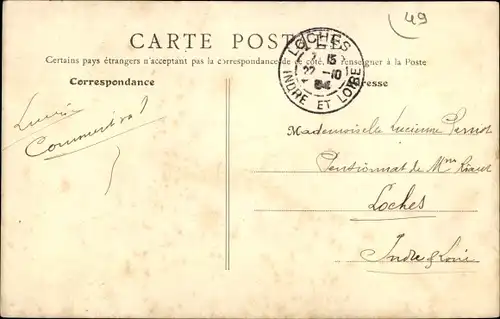 49
CARTE POSTALE
Certains pays étrangers n'acceptant pas la correspondance de ce côté, se renseigner à la Poste
LOCHES
15
22 - 10
INDRE ET LOIRE
Correspondance
Adresse
Mademoiselle Lucienne
Pensionnat de Mme
Loches
Indre & Loire